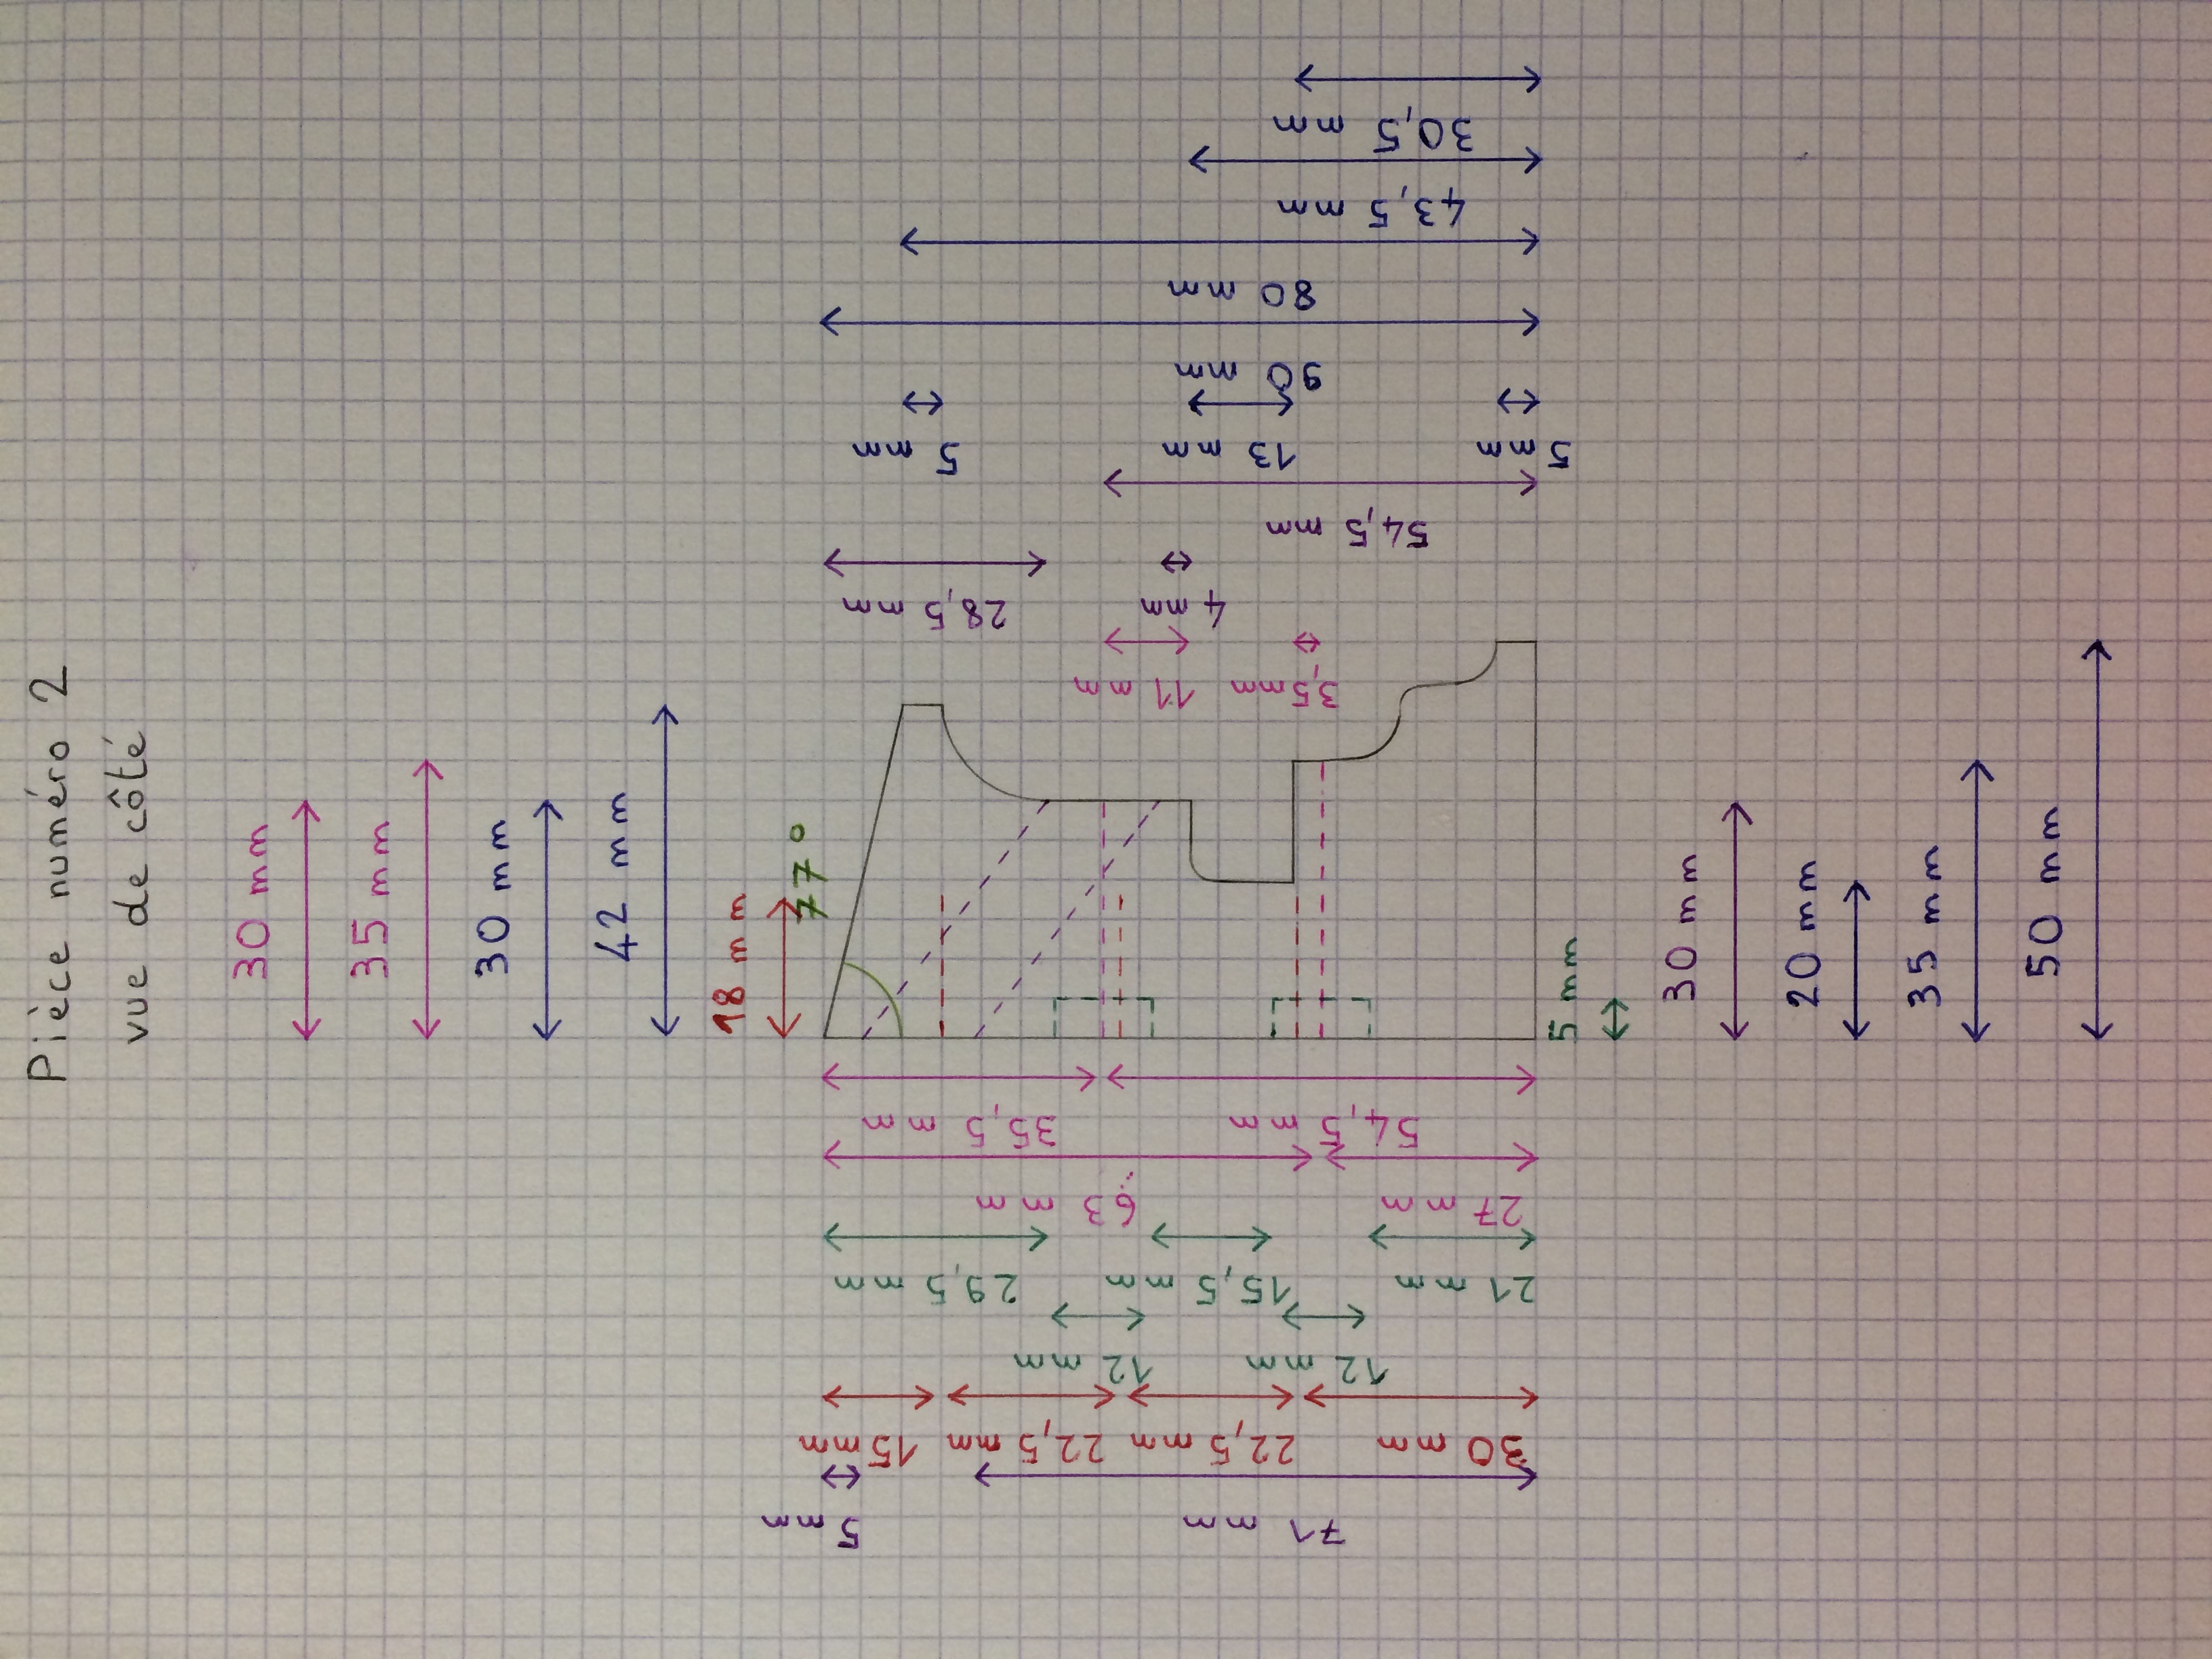 Pièce numéro 2
vue de côté
30 mm
35 mm
30 mm
42 mm
18 mm
77°
30,5 mm
43,5 mm
80 mm
90 mm
5 mm
13 mm
5 mm
54,5 mm
28,5 mm
4 mm
11 mm
3,5 mm
35,5 mm
54,5 mm
63 mm
27 mm
29,5 mm
15,5 mm
21 mm
12 mm
12 mm
15 mm
22,5 mm
22,5 mm
30 mm
5 mm
71 mm
5 mm
30 mm
20 mm
35 mm
50 mm